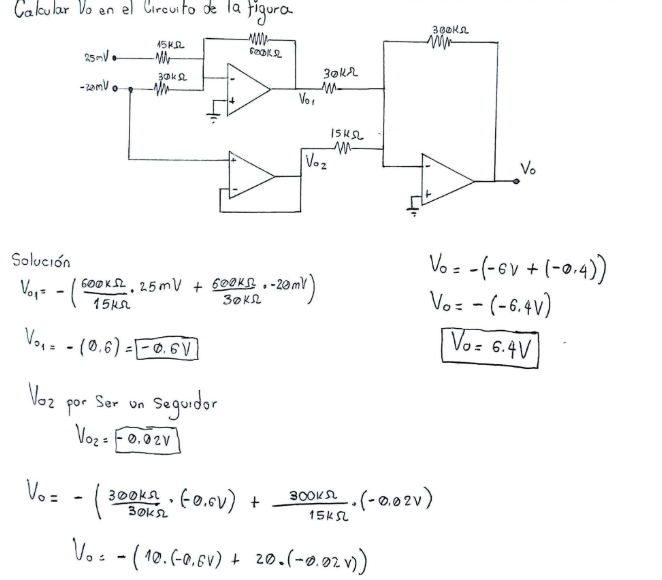 Calcular Vo en el Circuito de la figura
25mV
15KΩ
600KΩ
-20mV
30KΩ
Vo1
30KΩ
300KΩ
15KΩ
Vo2
Vo
-
+
+
-
-
+
Solución
Vo1= - (600KΩ/15KΩ . 25mV + 600KΩ/30KΩ . -20mV)
Vo1 = - (0.6) = -0.6V
Vo2 por Ser un Seguidor
Vo2 = -0.02V
Vo = - (300KΩ/30KΩ . (-0.6V) + 300KΩ/15KΩ . (-0.02V)
Vo = - (10.(-0.6V) + 20.(-0.02V))
Vo = -(-6V + (-0.4))
Vo = - (-6.4V)
Vo = 6.4V